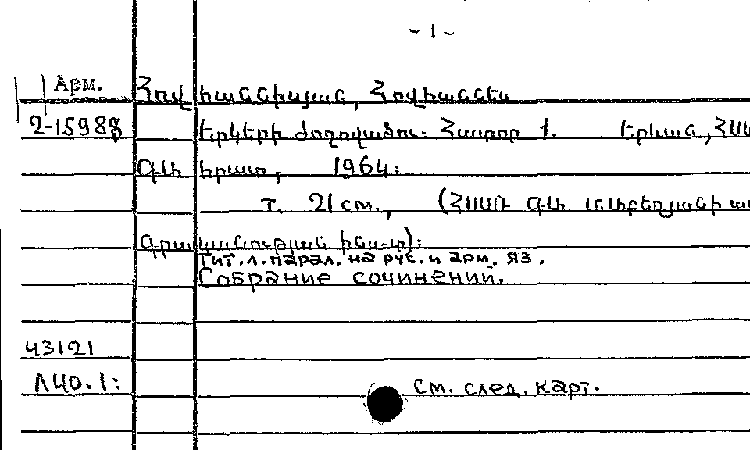 - 1 -
Арм. Հովհաննիսյան, Հովհաննես
2-15988 Երկերի ժողովածու. Հատոր 1. Երևան, ՀՍՍՌ
ԳԱ հրատ, 1964:
т. 21 см., (ՀՍՍՌ ԳԱ Մ. Աբեղյանի ան
գրականության ինս-տ):
Тит. л. парал. на рус. и арм. яз.
Собрание сочинений.
43121
ЛЦО. 1: См. след. карт.